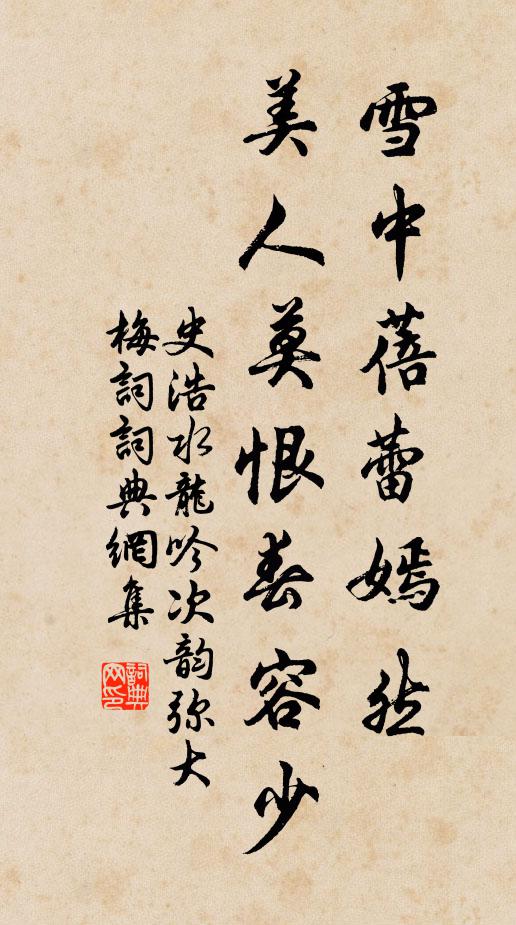 雪中蓓蕾嫣然
美人莫恨春容少
史浩水龍吟次韵弥大
梅詞詞典網集
詞典网印